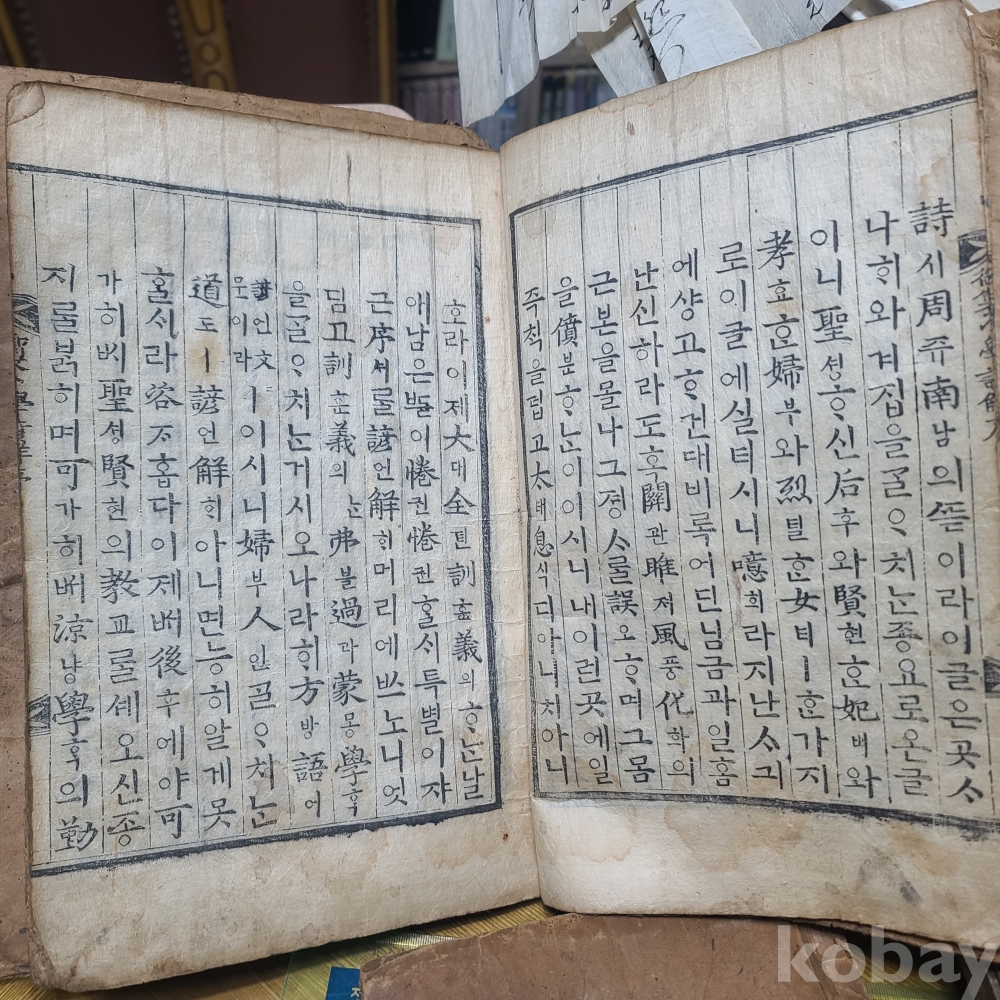 詩시周쥬南남의ᄠᅳᆮ이라이글은곳ᄉᆞ
나ᄒᆡ와겨집을ᄀᆞᆯᄋᆞ치ᄂᆞᆫ죵요로온글
이니聖셩ᄒᆞ신后후와賢현ᄒᆞᆫ妃비와
孝효ᄒᆞᆫ婦부와烈녈ᄒᆞᆫ女녀ㅣᄒᆞᆫ가지
로이글에실텨시니噫희라지난ᄉᆞ긔
에샹고ᄒᆞ건대비록어딘님금과일홈
난신하라도ᄒᆞ關관雎져風풍化화의
근본을몰나그졍ᄉᆞᄅᆞᆯ誤오ᄒᆞ며그몸
을僨분ᄒᆞᄂᆞᆫ이이시니내이런곳에일
즉칙을덥고太태息식디아니치아니
ᄒᆞ라이제大대全젼訓훈義의ᄒᆞᄂᆞᆫ날
애남은ᄠᅳᆮ이惓권惓권ᄒᆞᆯᄉᆡ특별이쟈
근序셔ᄅᆞᆯ諺언解ᄒᆡ머리에ᄡᅳ노니엇
딤고訓훈義의ᄂᆞᆫ弗불過과라蒙몽學ᄒᆞᆨ
을ᄀᆞᆯᄋᆞ치ᄂᆞᆫ게시오나라ᄒᆡ方방語어
諺언文문이라ㅣ이시니婦부人인ᄀᆞᆯᄋᆞ치ᄂᆞᆫ
道도ㅣ諺언解ᄒᆡ아니면능히알게못
ᄒᆞᆯ시라咨ᄌᆞ홉다이제ᄡᅥ後후에야可
가히ᄡᅥ聖셩賢현의敎교ᄅᆞᆯ셰오신죵
지ᄅᆞᆯ붉히며可가히ᄡᅥ涼냥學ᄒᆞᆨ의勤
kobay